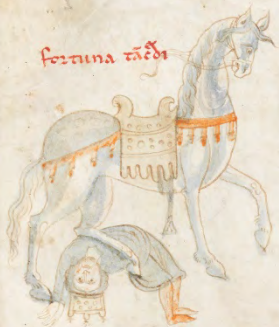 fortuna tācdi